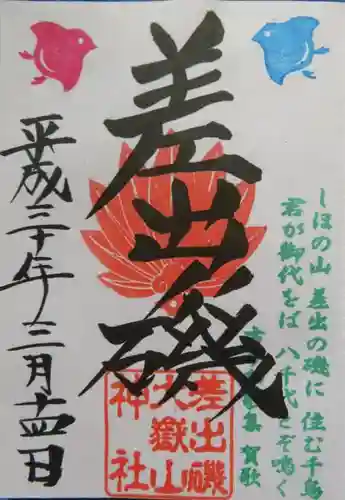 しほの山 差出の磯に 住む千鳥
君が御代をば 八千代とぞ鳴く
賀歌
差出磯
差出磯
大嶽山
神社
平成三十年三月十四日